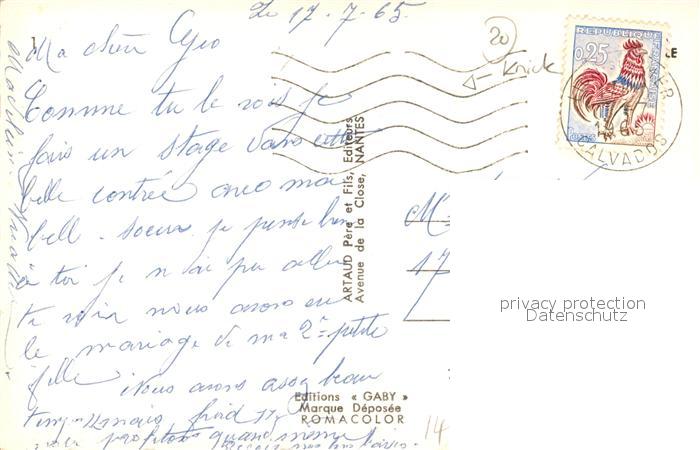 Le 17-7-65
Ma chère Géo
Comme tu le vois je
fais un stage dans cette
belle contrée avec ma
belle-soeur je pense bien
à toi je n'ai pu aller
te voir nous avons eu
le mariage de ma 2e petite
fille Nous avons assez beau
temps mais froid
profitons quand même
20
Knick
REPUBLIQUE
FRANÇAISE
0,25
CALVADOS
ARTAUD Père et Fils, Editeurs
Avenue de la Close, NANTES
M.
17
privacy protection
Datenschutz
Editions « GABY »
Marque Déposée
ROMACOLOR
14